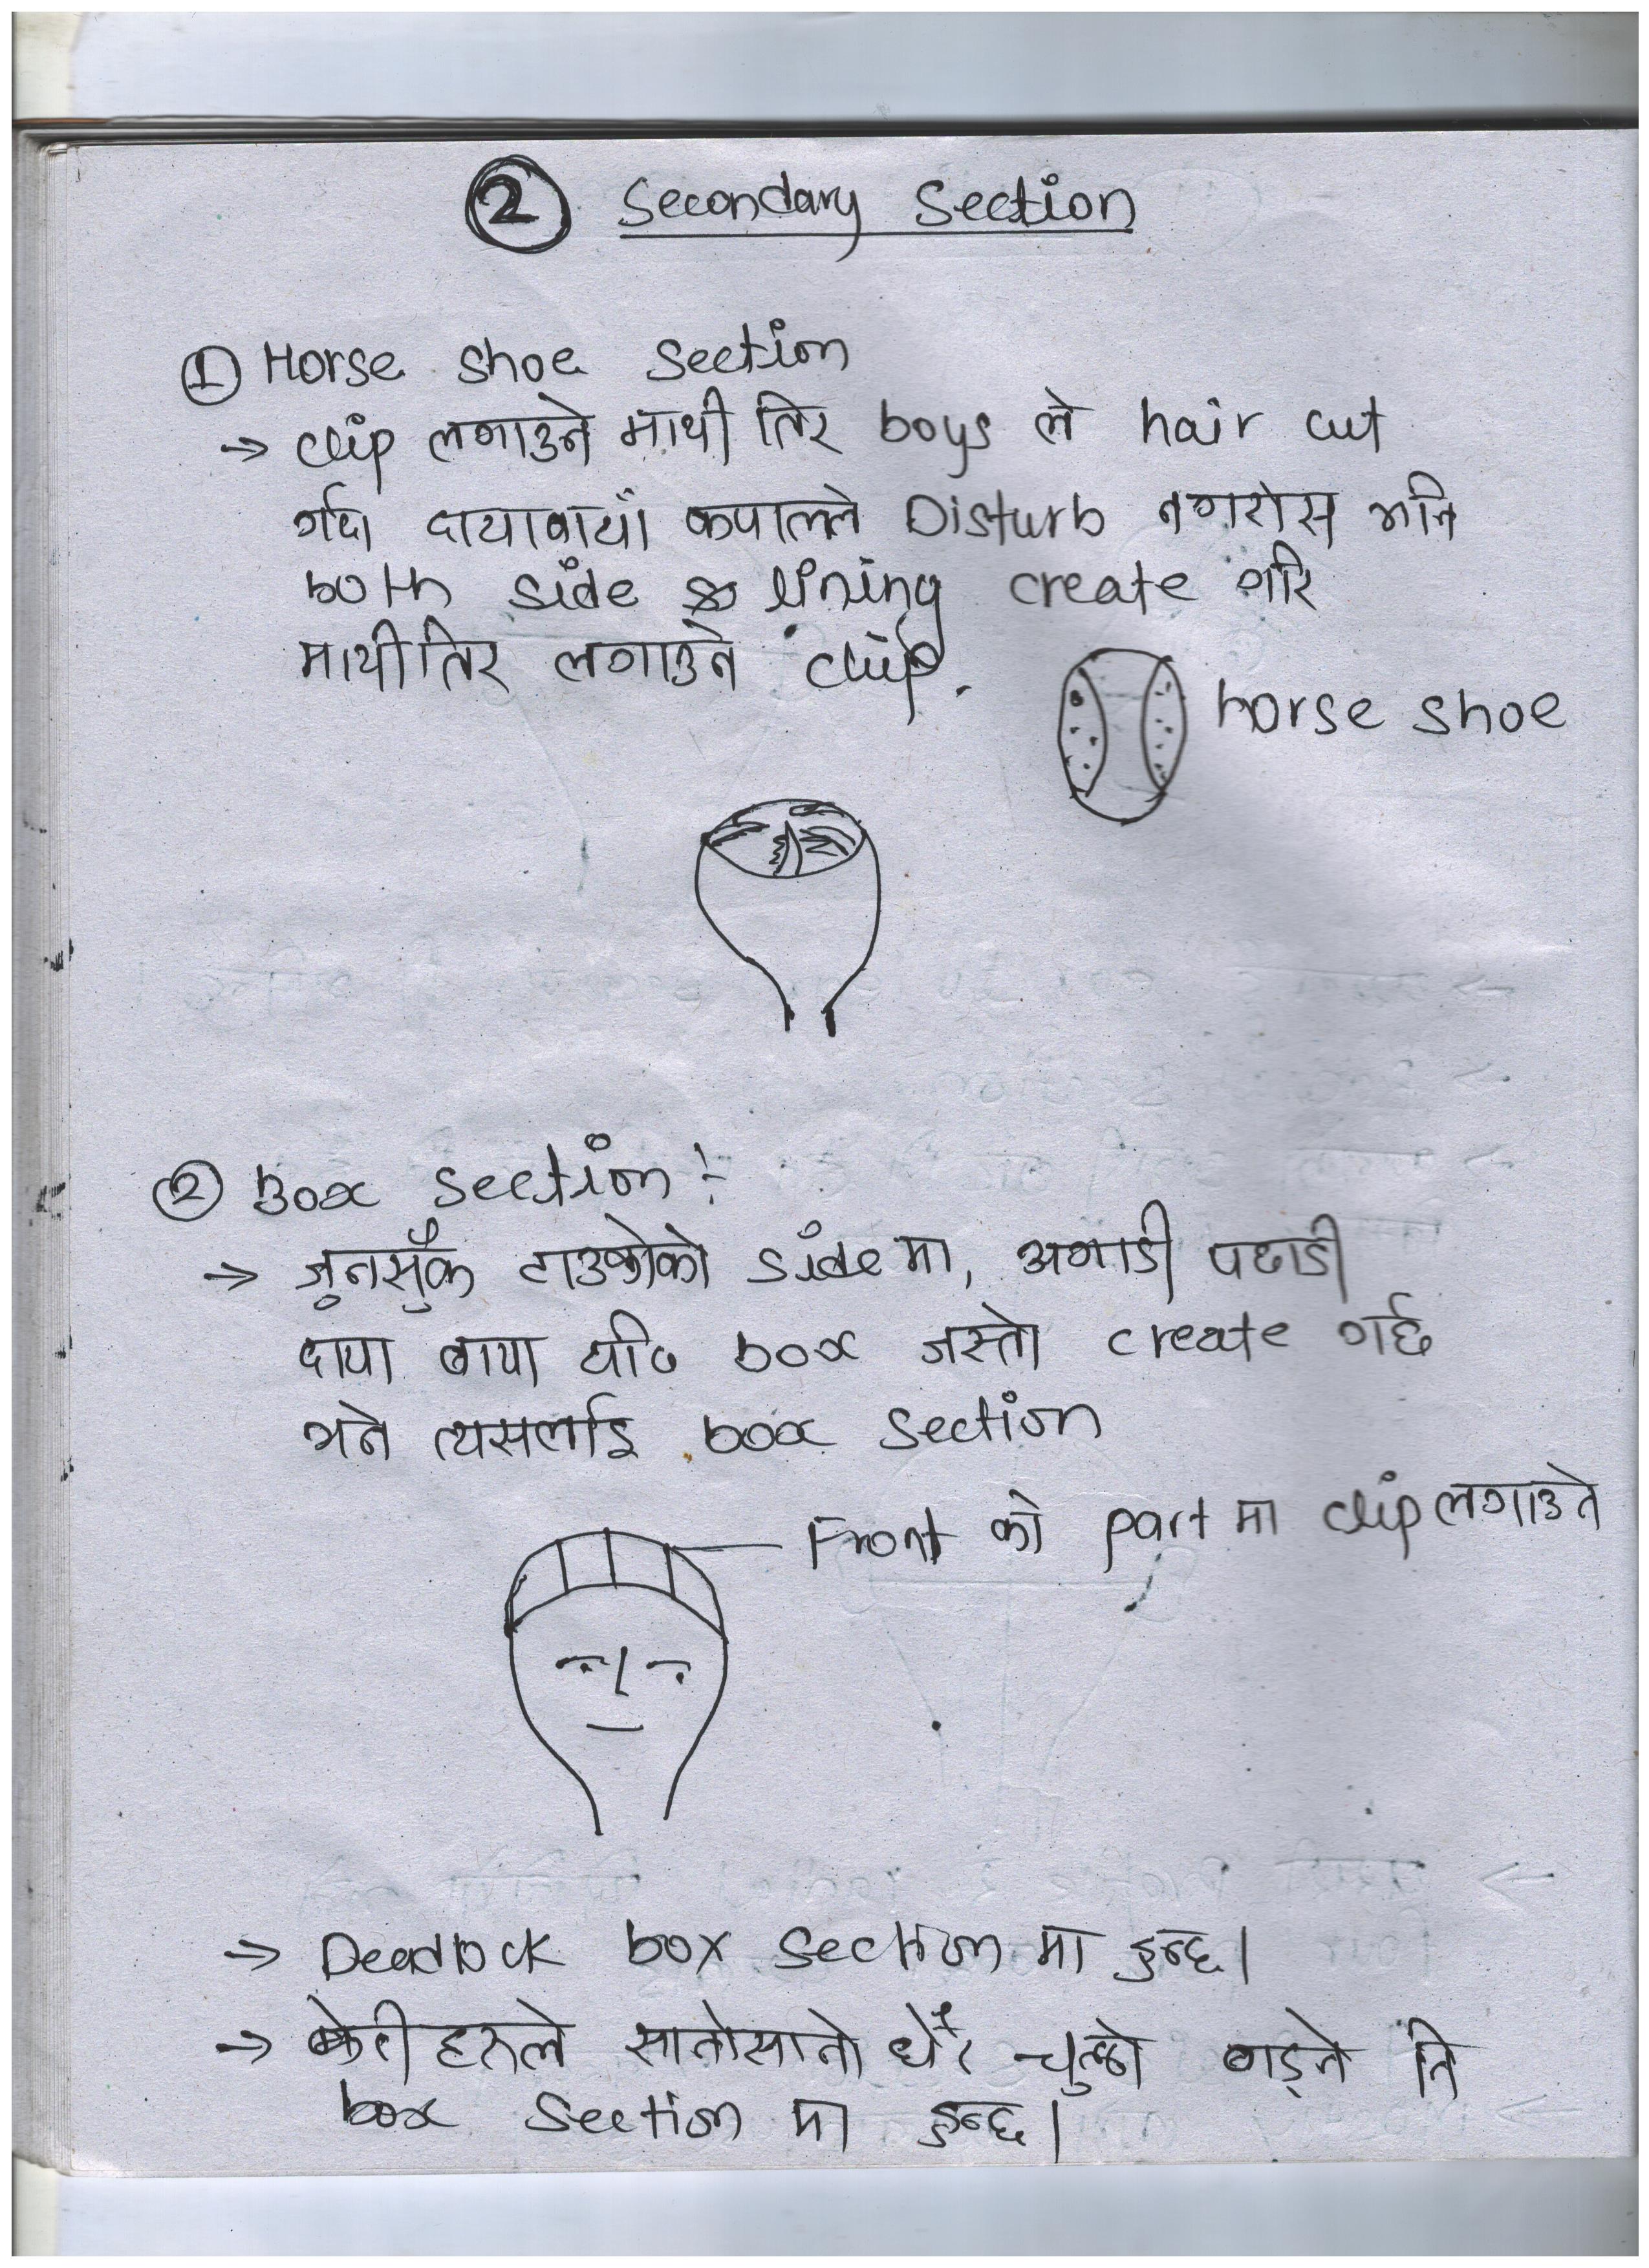 ② Secondary Section
① Horse shoe section
→ clip लगाउने माथी तिर boys ले hair cut
गर्दा दायाबायाँ कपालले Disturb नगरोस भनि
both side lining create गरि
माथीतिर लगाउने clip.
horse shoe
② Box section :-
→ जुनसुकै टाउकोको side मा, अगाडी पछाडी
दाया बाया यदि box जस्तो create गर्छ
भने त्यसलाई box section
Front को part मा clip लगाउने
→ Deadlock box section मा हुन्छ।
→ केटी हरुले सानोसानो धेरै चुल्ठो बाट्ने नि
box section मा हुन्छ।